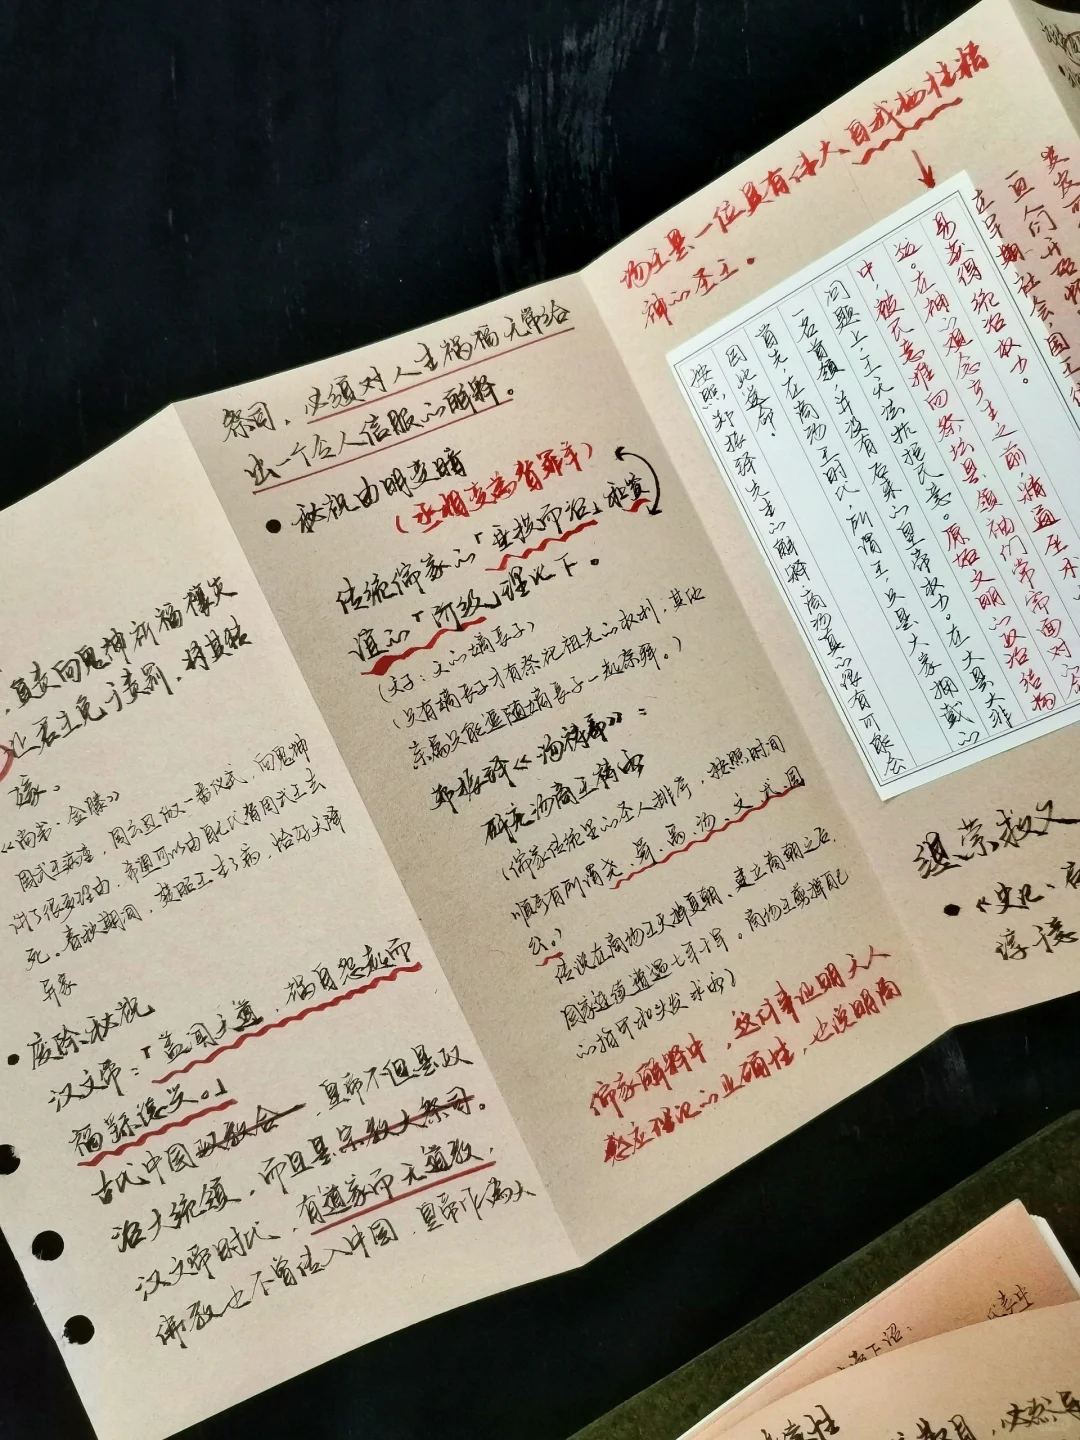 直责向鬼神祈福禳灾
让君主免于责罚，将其转
嫁。
《尚书·金縢》
周武王病重，周公旦做一番仪式，向鬼神
讲了很多理由，希望可以由自己代替周武王去
死。春秋期间，楚昭王生了病，恰好天降
异象
●废除秘祝
汉文帝：「盖闻天道，祸自怨起而
福繇德兴。」
古代中国政教合，皇帝不但是政
治大统领，而且是宗教大祭司。
汉文帝时代，有道家而无道教，
佛教也不曾传入中国，皇帝作为大
祭司，必须对人主祸福无常给
出一个令人信服的解释。
●秘祝由明变暗
（丞相变为替罪羊）
传统儒家的「垂拱而治」和贾
谊的「阶级」理论下。
（文子：文的嫡长子）
（只有嫡长子才有祭祀祖先的权利，其他
亲属只能追随嫡长子一起祭拜。）
郑振铎《汤祷篇》：
研究汤商王祷雨
（儒家传统里的圣人排序，按照时间
顺序有所谓尧、舜、禹、汤、文、武、周
公。）
传说在商汤王灭掉夏朝、建立商朝之后，
国家连续遭遇七年干旱。商汤王剪掉自己
的指甲和头发求雨）
儒家解释中，这件事证明天人
感应理论的正确性，也说明商
汤王是一位具有伟大自我牺牲精
神的圣王。
按照郑振铎先生的解释，商汤真的很有可能会
因此送命。
首先，在商汤王时代，所谓王，只是大家拥戴的
一名首领，并没有后来的皇帝权力。在大是大非
问题上，王无法抗拒民意。原始文明的政治结构
中，被民意推向祭坛是领袖们常常面对的
益。在神的祖念产生之前，精通巫术
易获得统治权力。
在早期社会，国王
缇萦救父
●《史记·
淳于